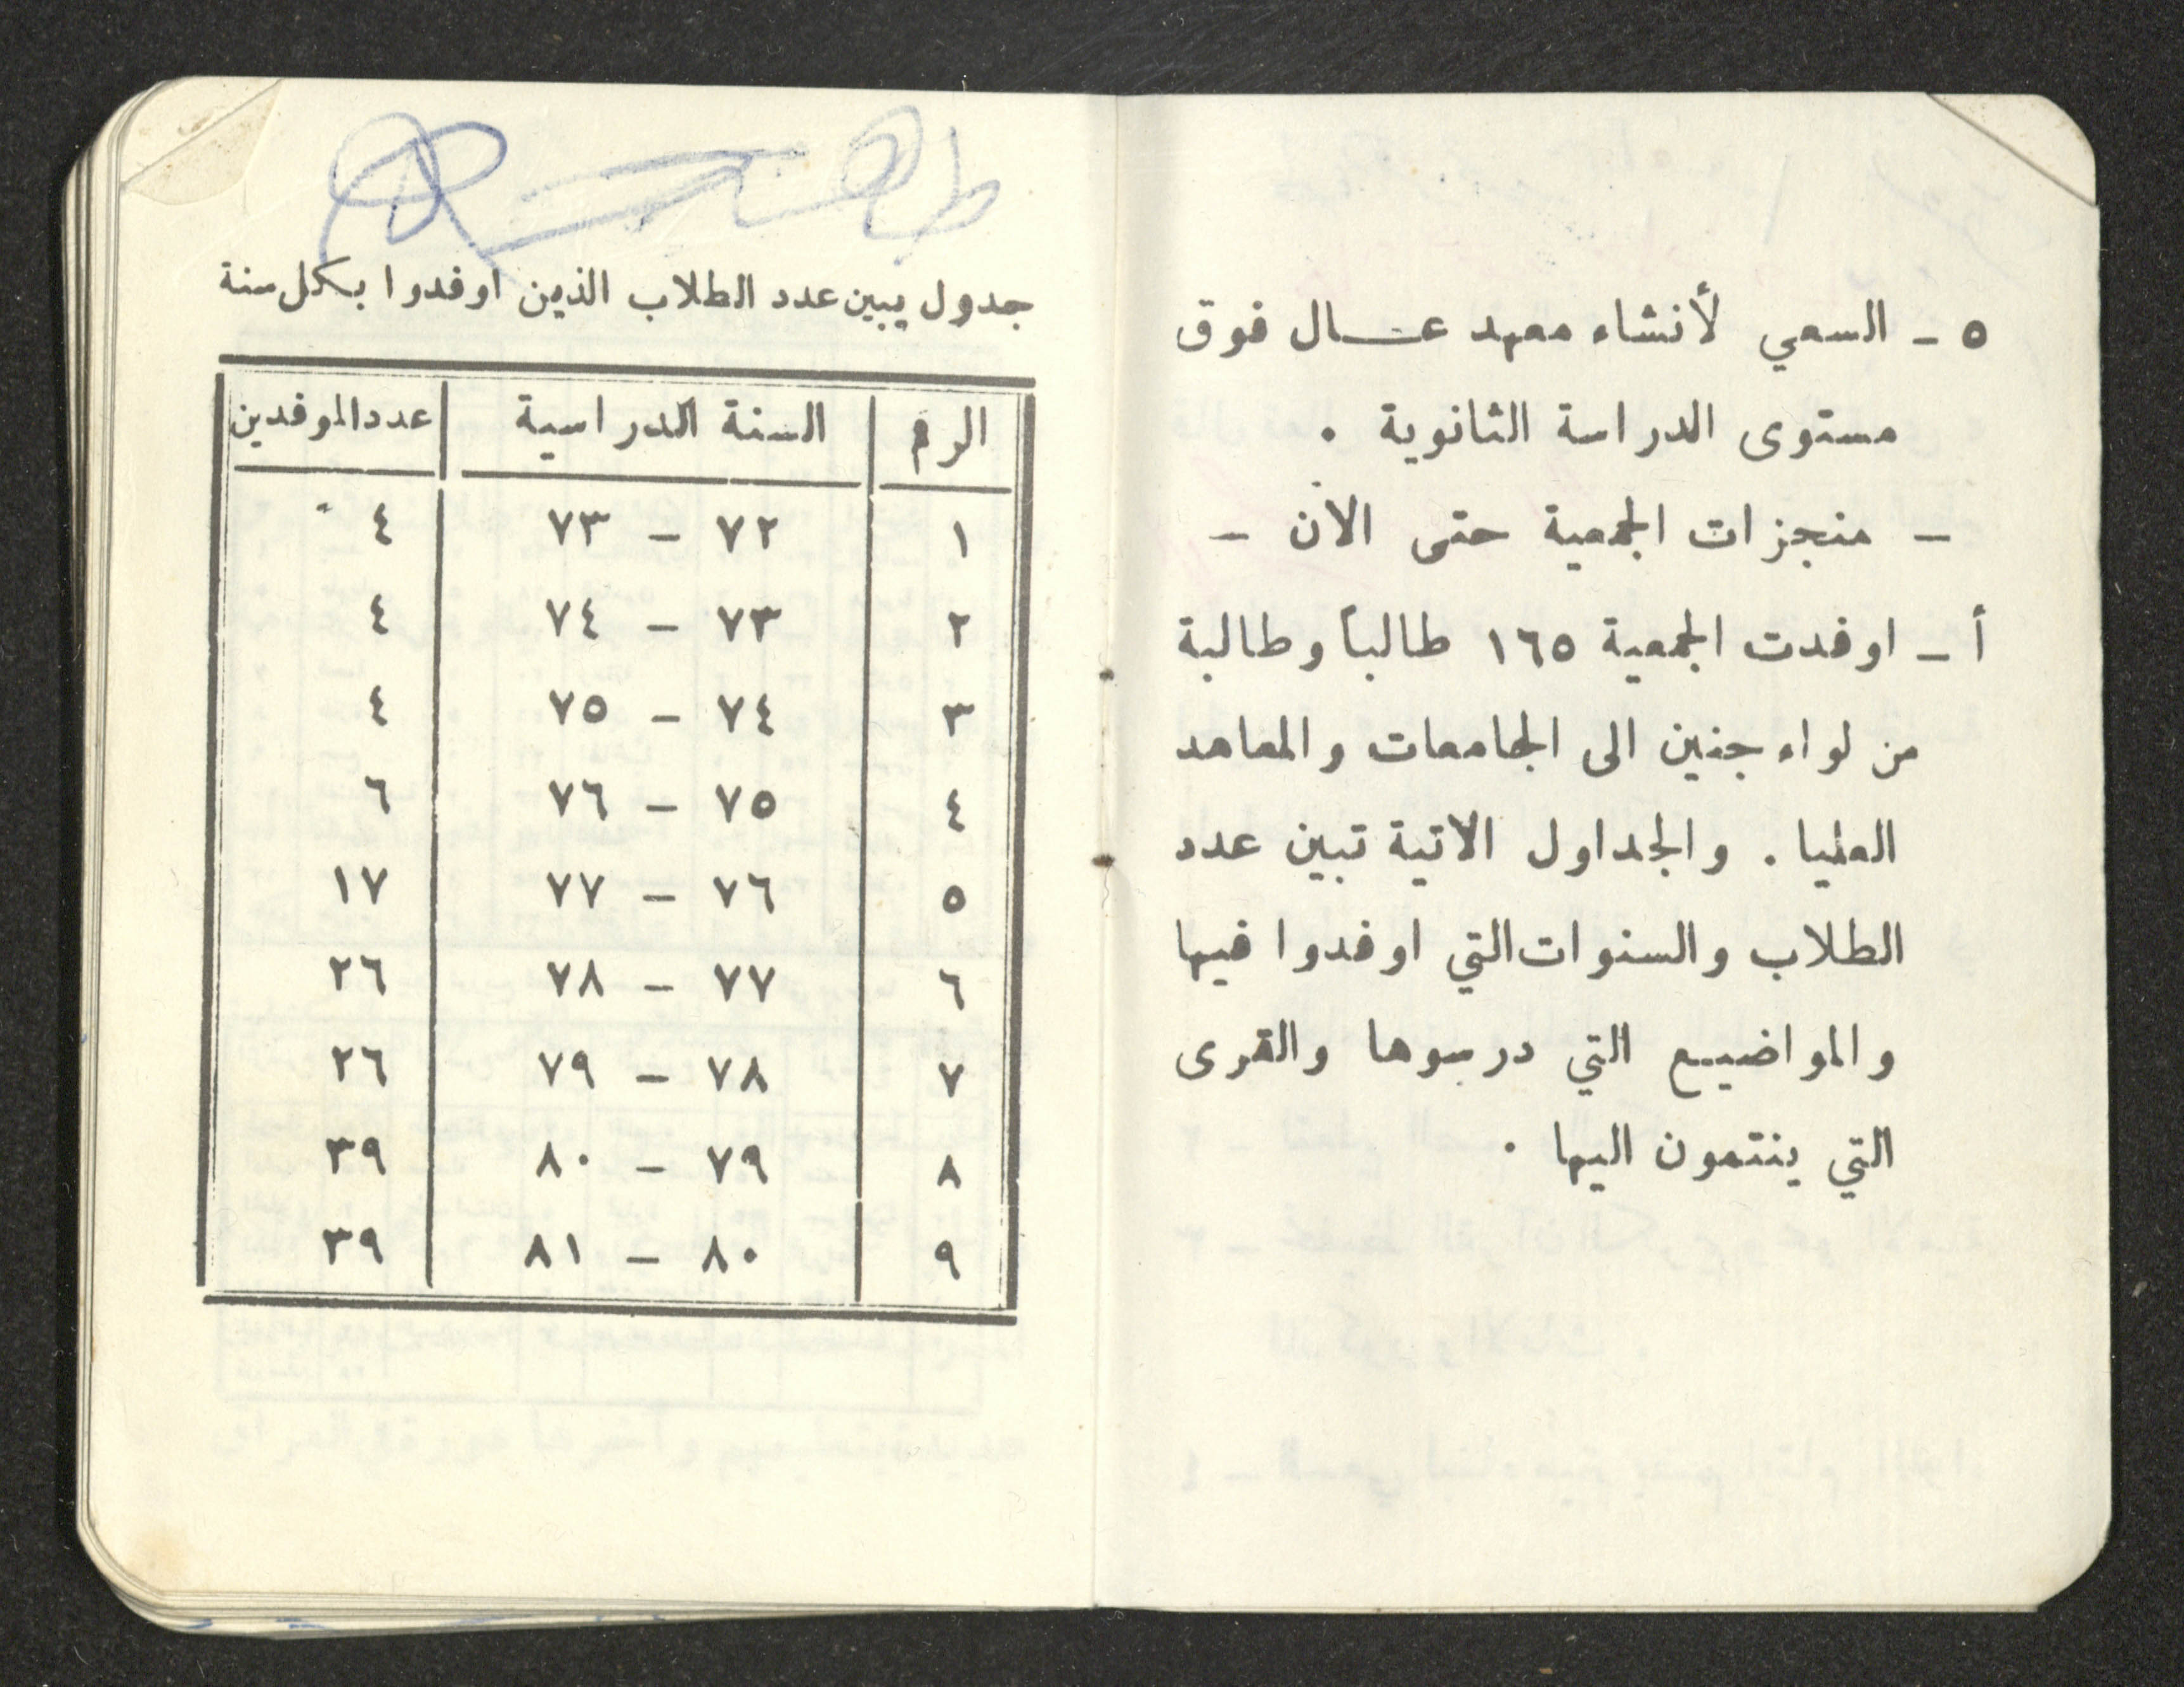 ٥ - السعي لأنشاء معهد عـــال فوق
مستوى الدراسة الثانوية .
- منجزات الجمعية حتى الآن -
أ - اوفدت الجمعية ١٦٥ طالباً وطالبة
من لواء جنين الى الجامعات والمعاهد
العليا . والجداول الاتية تبين عدد
الطلاب والسنوات التي اوفدوا فيها
والمواضيع التي درسوها والقرى
التي ينتمون اليها .
جدول يبين عدد الطلاب الذين اوفدوا بكل سنة
الرقم السنة الدراسية عدد الموفدين
١ ٧٢ - ٧٣ ٤
٢ ٧٣ - ٧٤ ٤
٣ ٧٤ - ٧٥ ٤
٤ ٧٥ - ٧٦ ٦
٥ ٧٦ - ٧٧ ١٧
٦ ٧٧ - ٧٨ ٢٦
٧ ٧٨ - ٧٩ ٢٦
٨ ٧٩ - ٨٠ ٣٩
٩ ٨٠ - ٨١ ٣٩